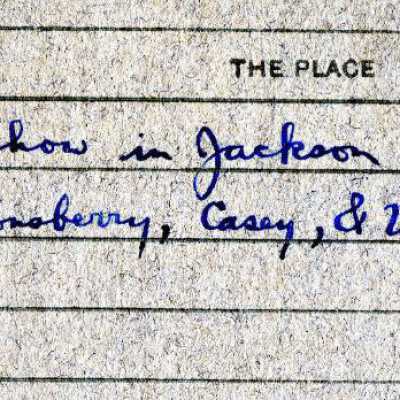 THE PLACE
how in Jackson
nsberry, Casey, &